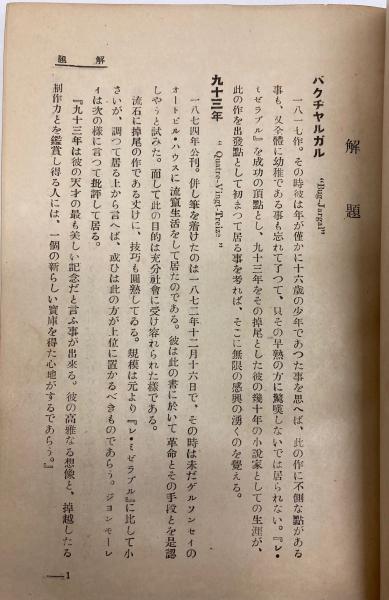 解題
解題
バクチヤルガル “Bug-Jargal”
一八一七作。その時彼は年が僅かに十六歳の少年であつた事を思へば、此の作に不備な點がある
事も、又全體に幼稚である事も忘れて了つて、只その早熟の方に驚嘆しないでは居られない。『レ・
ミゼラブル』を成功の頂點とし、九十三年をその掉尾とした彼の幾十年の小說家としての生涯が、
此の作を出發點として初まつて居る事を考れば、そこに無限の感興の湧くのを覺える。
九十三年 “Quatre-Vingt-Treize”
一八七四年公刊。併し筆を着けたのは一八七二年十二月十六日で、その時は未だゲルンセイの
オートビル・ハウスに流竄生活をして居たのである。彼は此の書に於いて革命とその手段とを是認
しやうと試みた。而して此の目的は充分社會に受け容れられた樣である。
流石に掉尾の作である丈けに、技巧も圓熟してゐる。規模は元より『レ・ミゼラブル』に比して小
さいが、調つて居る上から言へば、或ひは此の方が上位に置かるべきものであらう。ジヨンモーレ
イは次の樣に言つて批評して居る。
『九十三年は彼の天才の最も美しい記念だと言ふ事が出來る。彼の高雅なる想像と、掉越したる
制作力とを鑑賞し得る人には、一個の新らしい寳庫を得た心地がするであらう。』
1